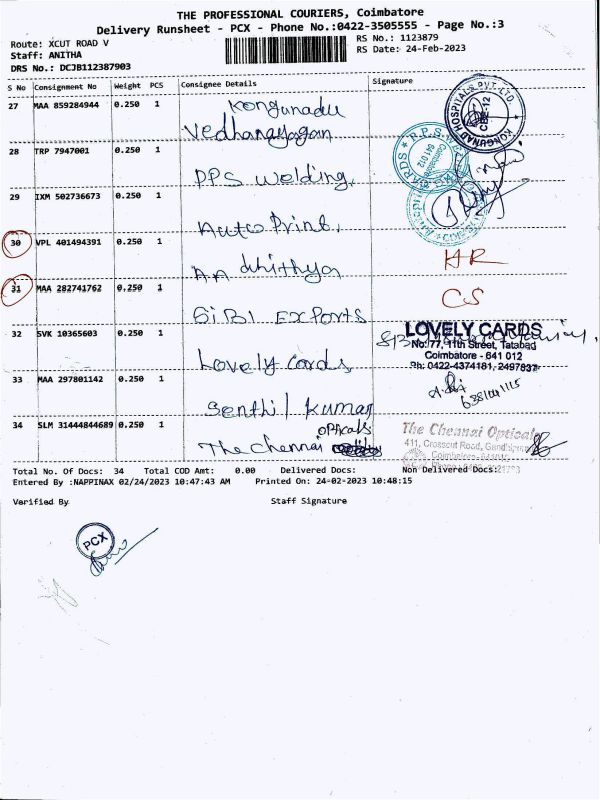 THE PROFESSIONAL COURIERS, Coimbatore
Delivery Runsheet - PCX - Phone No.:0422-3505555 - Page No.:3
Route: XCUT ROAD V
RS No.: 1123879
Staff: ANITHA
RS Date: 24-Feb-2023
DRS No.: DCJB112387903
S No Consignment No Weight PCS Consignee Details Signature
27 MAA 859284944 0.250 1 Kongunadu
Vedhanayagan
KONGUNAD HOSPITALS PVT. LTD.
CBE-12
28 TRP 7947001 0.250 1
PPS Welding
641 012
Coimbatore
29 IXM 502736673 0.250 1
Auto Print,
30 VPL 401494391 0.250 1
AA dhithya
HR
31 MAA 282741762 0.250 1
SiBI EXPORTS
CS
32 SVK 10365603 0.250 1
Lovely Cards
LOVELY CARDS
No:77, 11th Street, Tatabad
Coimbatore - 641 012
Ph: 0422-4374181, 2497837
33 MAA 297801142 0.250 1
Senthil Kumar
34 SLM 31444844689 0.250 1 opticals
The Chennai
The Chennai Opticals
411, Crosscut Road,
Total No. Of Docs: 34 Total COD Amt: 0.00 Delivered Docs: Non Delivered Docs:
Entered By :NAPPINAX 02/24/2023 10:47:43 AM Printed On: 24-02-2023 10:48:15
Verified By Staff Signature
PCX